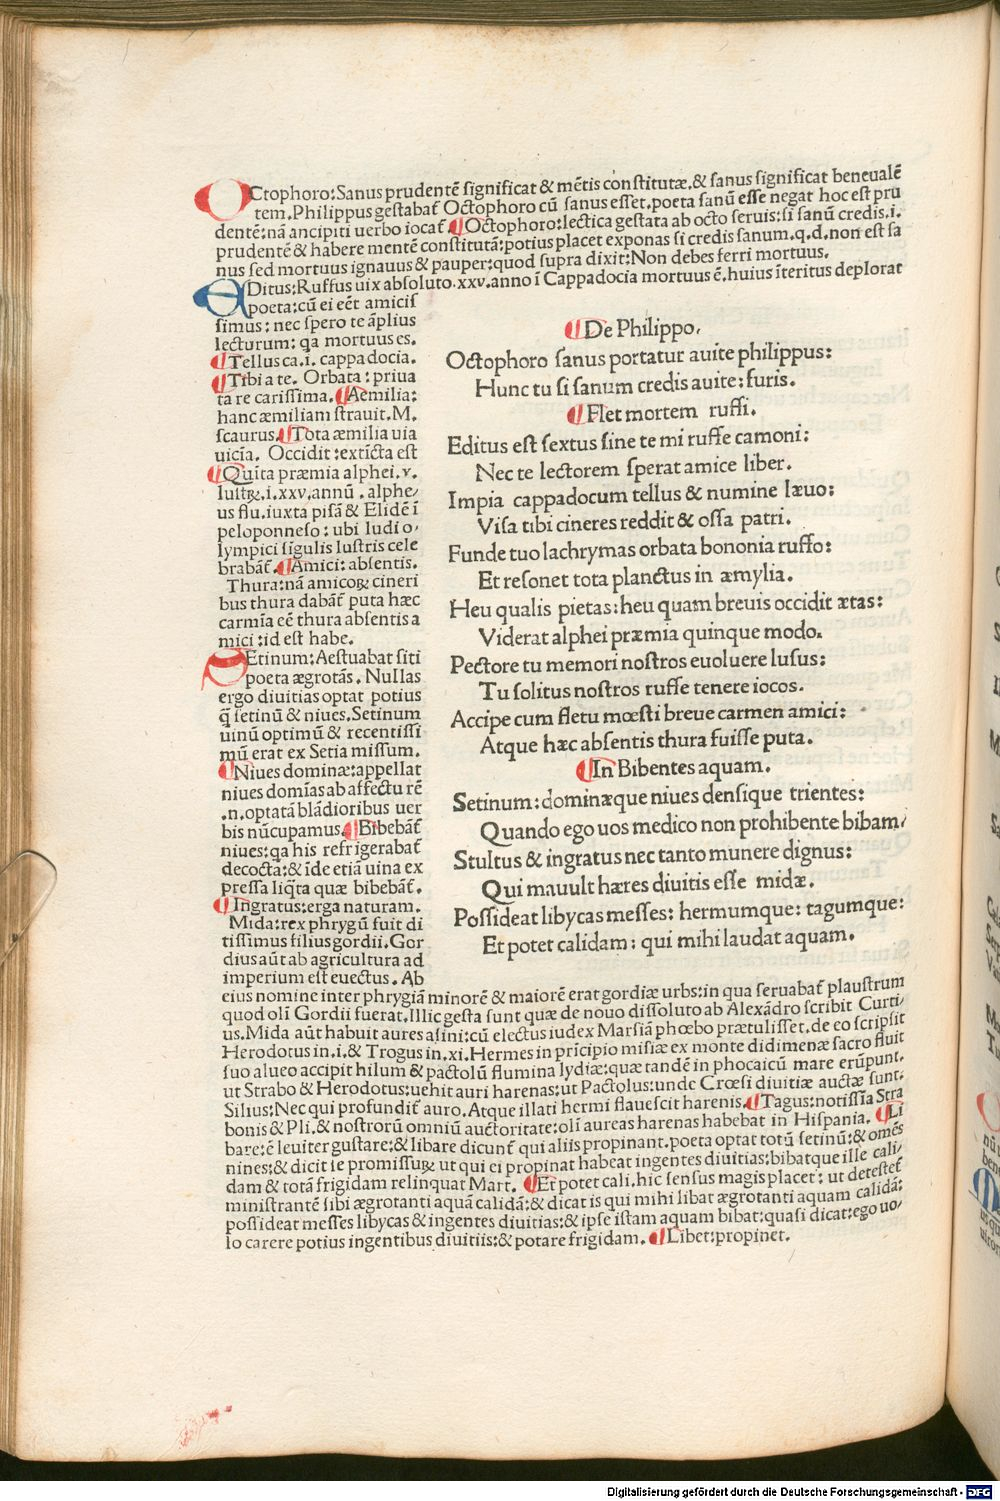 OCtophoro:Sanus prudentē significat & mētis constitutæ.& sanus significat beneualē
tem.Philippus gestabat̄ Octophoro cū sanus esset.poeta sanū esse negat hoc est pru
dentē:nā ancipiti uerbo iocat̄.¶Octophoro:lectica gestata ab octo seruis:si sanū credis.i.
prudentē & habere mentē constitutā:potius placet exponas si credis sanum.q.d.non est sa
nus sed mortuus ignauus & pauper:quod supra dixit:Non debes ferri mortuus.
EDitus:Ruffus uix absoluto.xxv.anno ī Cappadocia mortuus ē.huius īteritus deplorat
poeta:cū ei eēt amicis
simus: nec spero te āplius
lecturum: qa mortuus es.
¶Tellus ca.i. cappadocia.
¶Tibi a te. Orbata: priua
ta re carissima.¶Aemilia:
hanc æmiliam strauit.M.
scaurus.¶Tota æmilia uia
uicīa. Occidit:extīcta est
¶Quīta præmia alphei.v.
lustꝝ.i.xxv.annū.alphe/
us flu.iuxta pisā & Elidē ī
peloponneso: ubi ludi o/
lympici sigulis lustris cele
brabāt̄.¶Amici: absentis.
Thura:nā amicoꝝ cineri
bus thura dabāt̄ puta hæc
carmīa eē thura absentis a
mici:id est habe.
SEtinum:Aestuabat siti
poeta ægrotās. Nullas
ergo diuitias optat potius
q̄ setinū & niues.Setinum
uinū optimū & recentissi
mū erat ex Setia missum.
¶Niues dominæ:appellat
niues domīas ab affectu rē
.n.optatā blādioribus uer
bis nūcupamus.¶Bibebāt̄
niues:qa his refrigerabat̄
decocta:& īde etiā uina ex
pressa liq̄ta quæ bibebāt̄.
¶Ingratus:erga naturam.
Mida:rex phrygū fuit di
tissimus filius gordii.Gor
dius aūt ab agricultura ad
imperium est euectus. Ab
¶De Philippo.
Octophoro sanus portatur auite philippus:
Hunc tu si sanum credis auite: furis.
¶Flet mortem ruffi.
Editus est sextus sine te mi ruffe camoni:
Nec te lectorem sperat amice liber.
Impia cappadocum tellus & numine læuo:
Visa tibi cineres reddit & ossa patri.
Funde tuo lachrymas orbata bononia ruffo:
Et resonet tota planctus in æmylia.
Heu qualis pietas:heu quam breuis occidit ætas:
Viderat alphei præmia quinque modo.
Pectore tu memori nostros euoluere lusus:
Tu solitus nostros ruffe tenere iocos.
Accipe cum fletu mœsti breue carmen amici:
Atque hæc absentis thura fuisse puta.
¶In Bibentes aquam.
Setinum:dominæque niues densique trientes:
Quando ego uos medico non prohibente bibam/
Stultus & ingratus nec tanto munere dignus:
Qui mauult hæres diuitis esse midæ.
Possideat libycas messes: hermumque: tagumque:
Et potet calidam: qui mihi laudat aquam.
eius nomine inter phrygiā minorē & maiorē erat gordiæ urbs:in qua seruabat̄ plaustrum
quod olī Gordii fuerat.Illic gesta sunt quæ de nouo dissoluto ab Alexādro scribit Curti/
us.Mida aūt habuit aures asini:cū electus iudex Marsiā phœbo prætulisset.de eo scripsit
Herodotus in.i.& Trogus in.xi.Hermes in prīcipio misiæ ex monte didimenæ sacro fluit
suo alueo accipit hilum & pactolū flumina lydiæ:quæ tandē in phocaicū mare erūpunt.
ut Strabo & Herodotus:uehit auri harenas:ut Pactolus:unde Crœsi diuitiæ auctæ sunt.
Silius:Nec qui profundit̄ auro.Atque illati hermi flauescit harenis.¶Tagus:notissīa Stra
bonis & Pli.& nostrorū omniū auctoritate:olī aureas harenas habebat in Hispania.¶Li
bare:ē leuiter gustare:& libare dicunt̄ qui aliis propinant.poeta optat totū setinū:& omēs
nines:& dicit se promissuꝝ ut qui ei propinat habeat ingentes diuitias:bibatque ille cali/
dam & totā frigidam relinquat Mart. ¶Et potet cali.hic sensus magis placet: ut detestet̄
ministrantē sibi ægrotanti aquā calidā:& dicat is qui mihi libat ægrotanti aquam calidā:
possideat messes libycas & ingentes diuitias:& ipse istam aquam bibat:quasi dicat:ego uo/
lo carere potius ingentibus diuitiis:& potare frigidam.¶Libet:propinet.
Digitalisierung gefördert durch die Deutsche Forschungsgemeinschaft - DFG